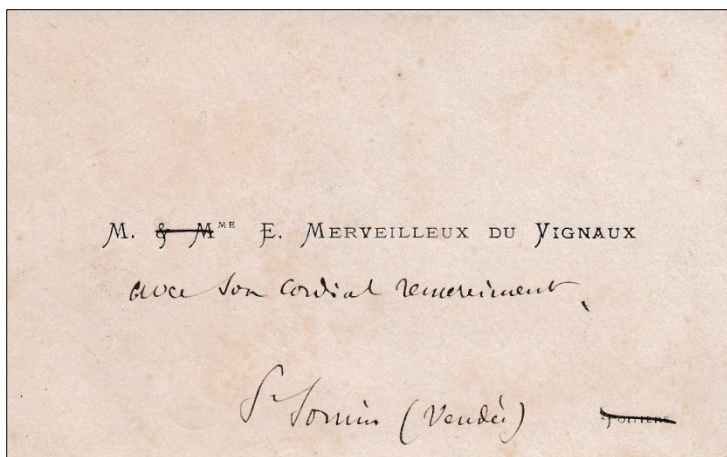 M. & MME E. MERVEILLEUX DU VIGNAUX
avec son cordial remerciment,
St Sornin (Vendée)
POITIERS